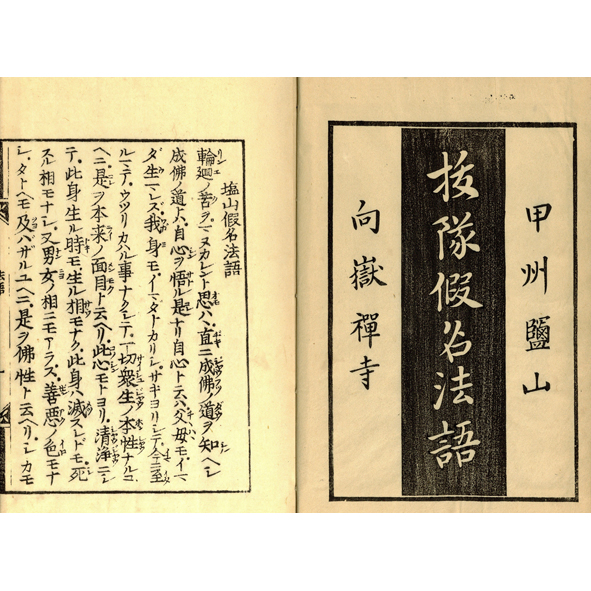 甲州鹽山
拔隊假名法語
向嶽禪寺
塩山假名法語
輪廻ノ苦ヲマヌカレント思ハヾ直ニ成佛ノ道ヲ知ヘシ
成佛ノ道トハ自心ヲ悟ル是ナリ自心ト云ハ父母モイマ
ダ生マレズ我身モイマタナカリシサキヨリシテ今ニ至
ルマテウツリカハル事ナクシテ一切衆生ノ本性ナルユ
ヘニ是ヲ本来ノ面目ト云ヘリ此心モトヨリ清浄ニシ
テ此身生ル時モ生ル相モナク此身ハ滅スレドモ死
スル相モナシ又男女ノ相ニモアラス善悪ノ色モナ
シタトヘモ及バザルユヘニ是ヲ佛性ト云ヘリシカモ